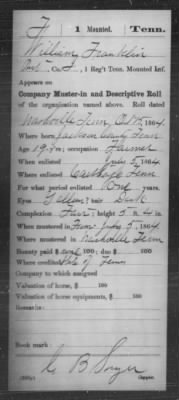 F 1 Mounted. Tenn.
William Franklin
Pvt, Co. , 1 Reg't Tenn. Mounted Inf.
Appears on
Company Muster-in and Descriptive Roll
of the organization named above. Roll dated
Nashville Tenn, Oct , 1864.
Where born Jackson County Tenn
Age 19 y'rs; occupation Farmer
When enlisted July 5, 1864.
Where enlisted Carthage Tenn
For what period enlisted One years.
Eyes ; hair Dark
Complexion Fair; height 5 ft. 4 in.
When mustered in July 5, 1864
Where mustered in Nashville Tenn
Bounty paid $ 100; due $ 100
Where credited State of Tenn
Company to which assigned
Valuation of horse, $ 100
Valuation of horse equipments, $ 100
Remarks:
Book mark:
C B
Copyist.